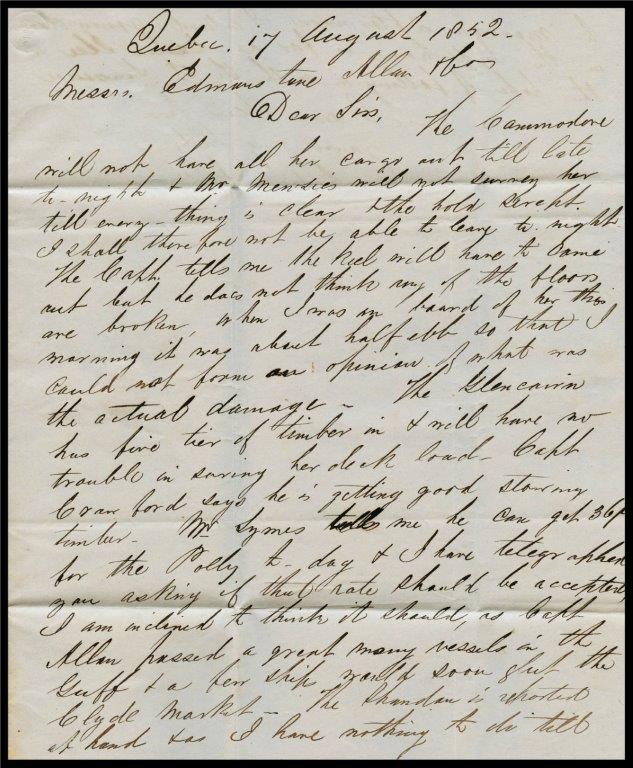 Quebec. 17 August 1852.
Messrs. Edmonstone Allan & Co
Dear Sirs,
The Commodore
will not have all her cargo out till late
to-night & Mr Menzies will not survey her
till every-thing is clear & the hold swept.
I shall therefore not be able to leave to-night.
The Capt. tells me the keel will have to come
out but he does not think any of the floors
are broken, when I was on board of her this
morning it was about half ebb so that I
could not form an opinion of what was
the actual damage -
The Glencairn
has five tier of timber in & will have no
trouble in saving her deck load - Capt
Crawford says he is getting good stowing
timber - Mr Symes tells me he can get 36/
for the Polly to-day & I have telegraphed
you asking if that rate should be accepted,
I am inclined to think it should, as Capt
Allan passed a great many vessels in the
Gulf & a few ships would soon glut the
Clyde market - The Shandon is reported
at hand & as I have nothing to do till